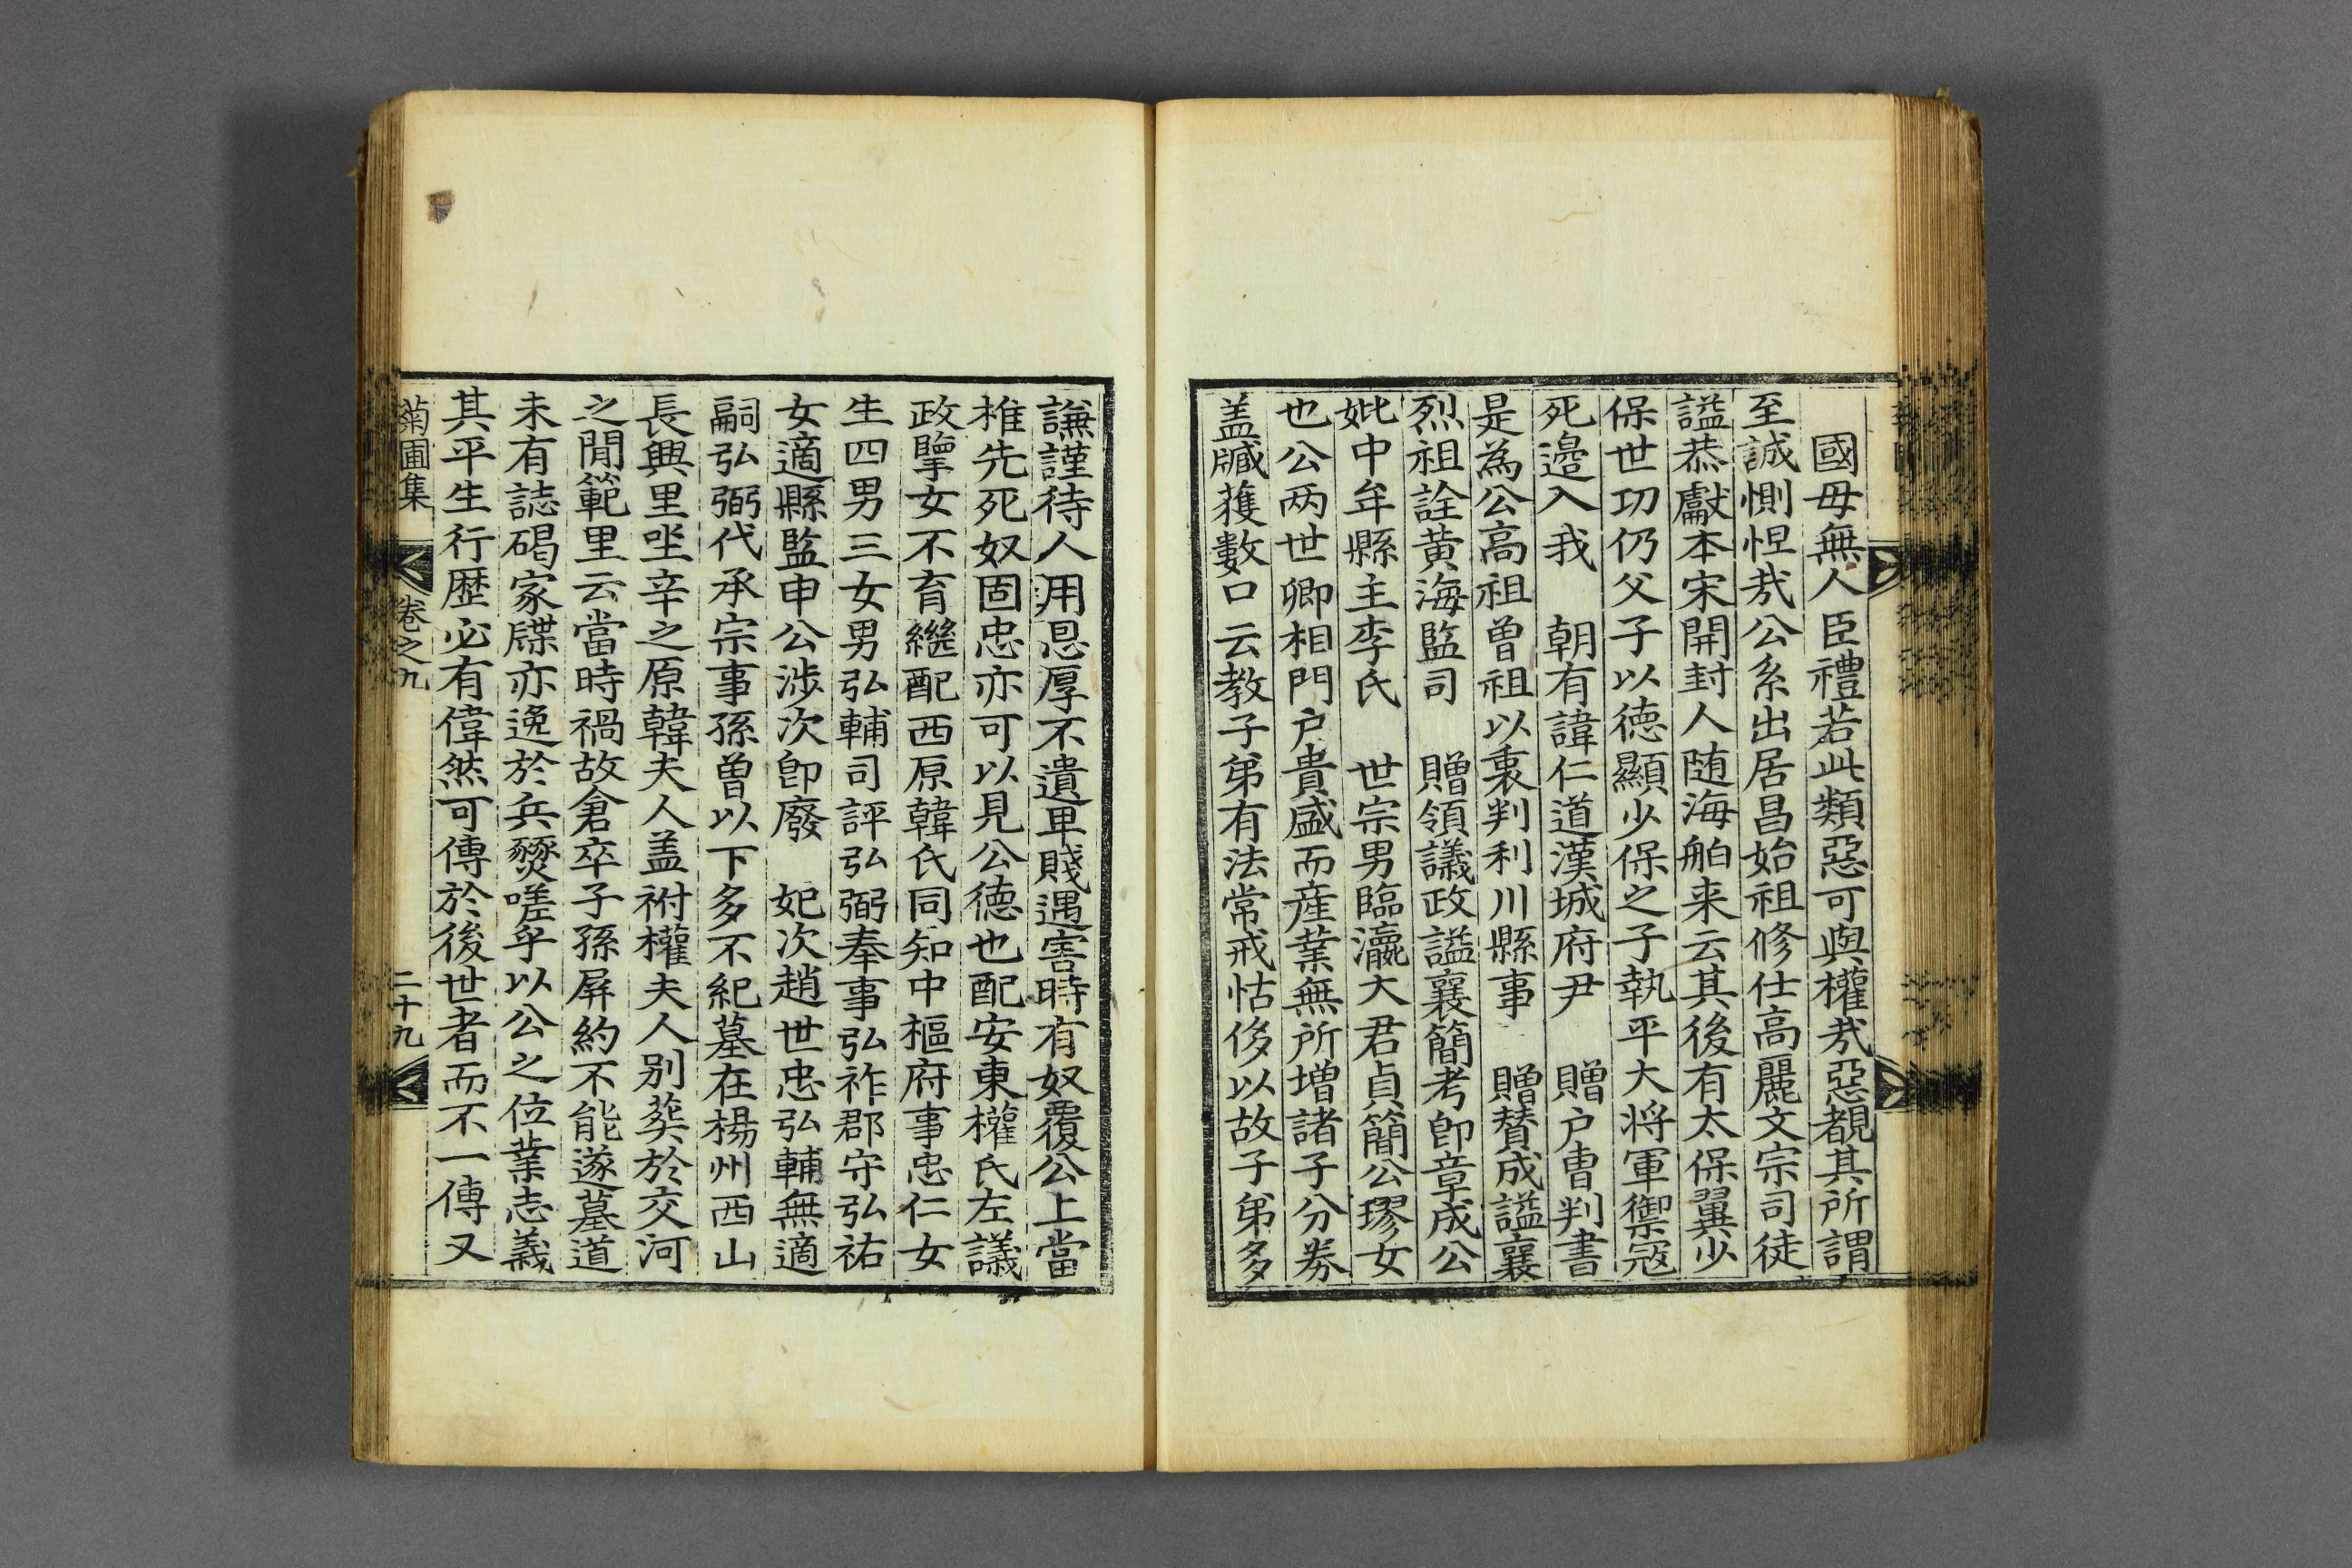 國母無人臣禮若此類惡可與權㢤惡覩其所謂
至誠惻怛㢤公系出居昌始祖修仕高麗文宗司徒
謚恭獻本宋開封人随海舶来云其後有太保翼少
保世功仍父子以徳顯少保之子執平大将軍禦冦
死邉入我　朝有諱仁道漢城府尹　贈户曺判書
是為公高祖曽祖以裏判利川縣事　贈賛成謚襄
烈祖詮黄海監司　贈領議政謚襄簡考卽章成公
妣中牟縣主李氏　世宗男臨瀛大君貞簡公璆女
也公两世卿相門户貴盛而産業無所増諸子分劵
盖臧獲數口云教子弟有法常戒怙侈以故子弟多
謙謹待人用恩厚不遺卑賤遇害時有奴覆公上當
椎先死奴固忠亦可以見公德也配安東權氏左議
政擥女不育繼配西原韓氏同知中樞府事忠仁女
生四男三女男弘輔司評弘弼奉事弘祚郡守弘祐
女適縣監申公涉次卽廢　妃次趙世忠弘輔無適
嗣弘弼代承宗事孫曽以下多不紀墓在楊州西山
長興里坐辛之原韓夫人盖祔權夫人别葬於交河
之閒範里云當時禍故倉卒子孫屏約不能遂墓道
未有誌碣家牒亦逸於兵燹嗟乎以公之位業志義
其平生行歴必有偉然可傳於後世者而不一傳又
菊圃集　卷之九　二十九